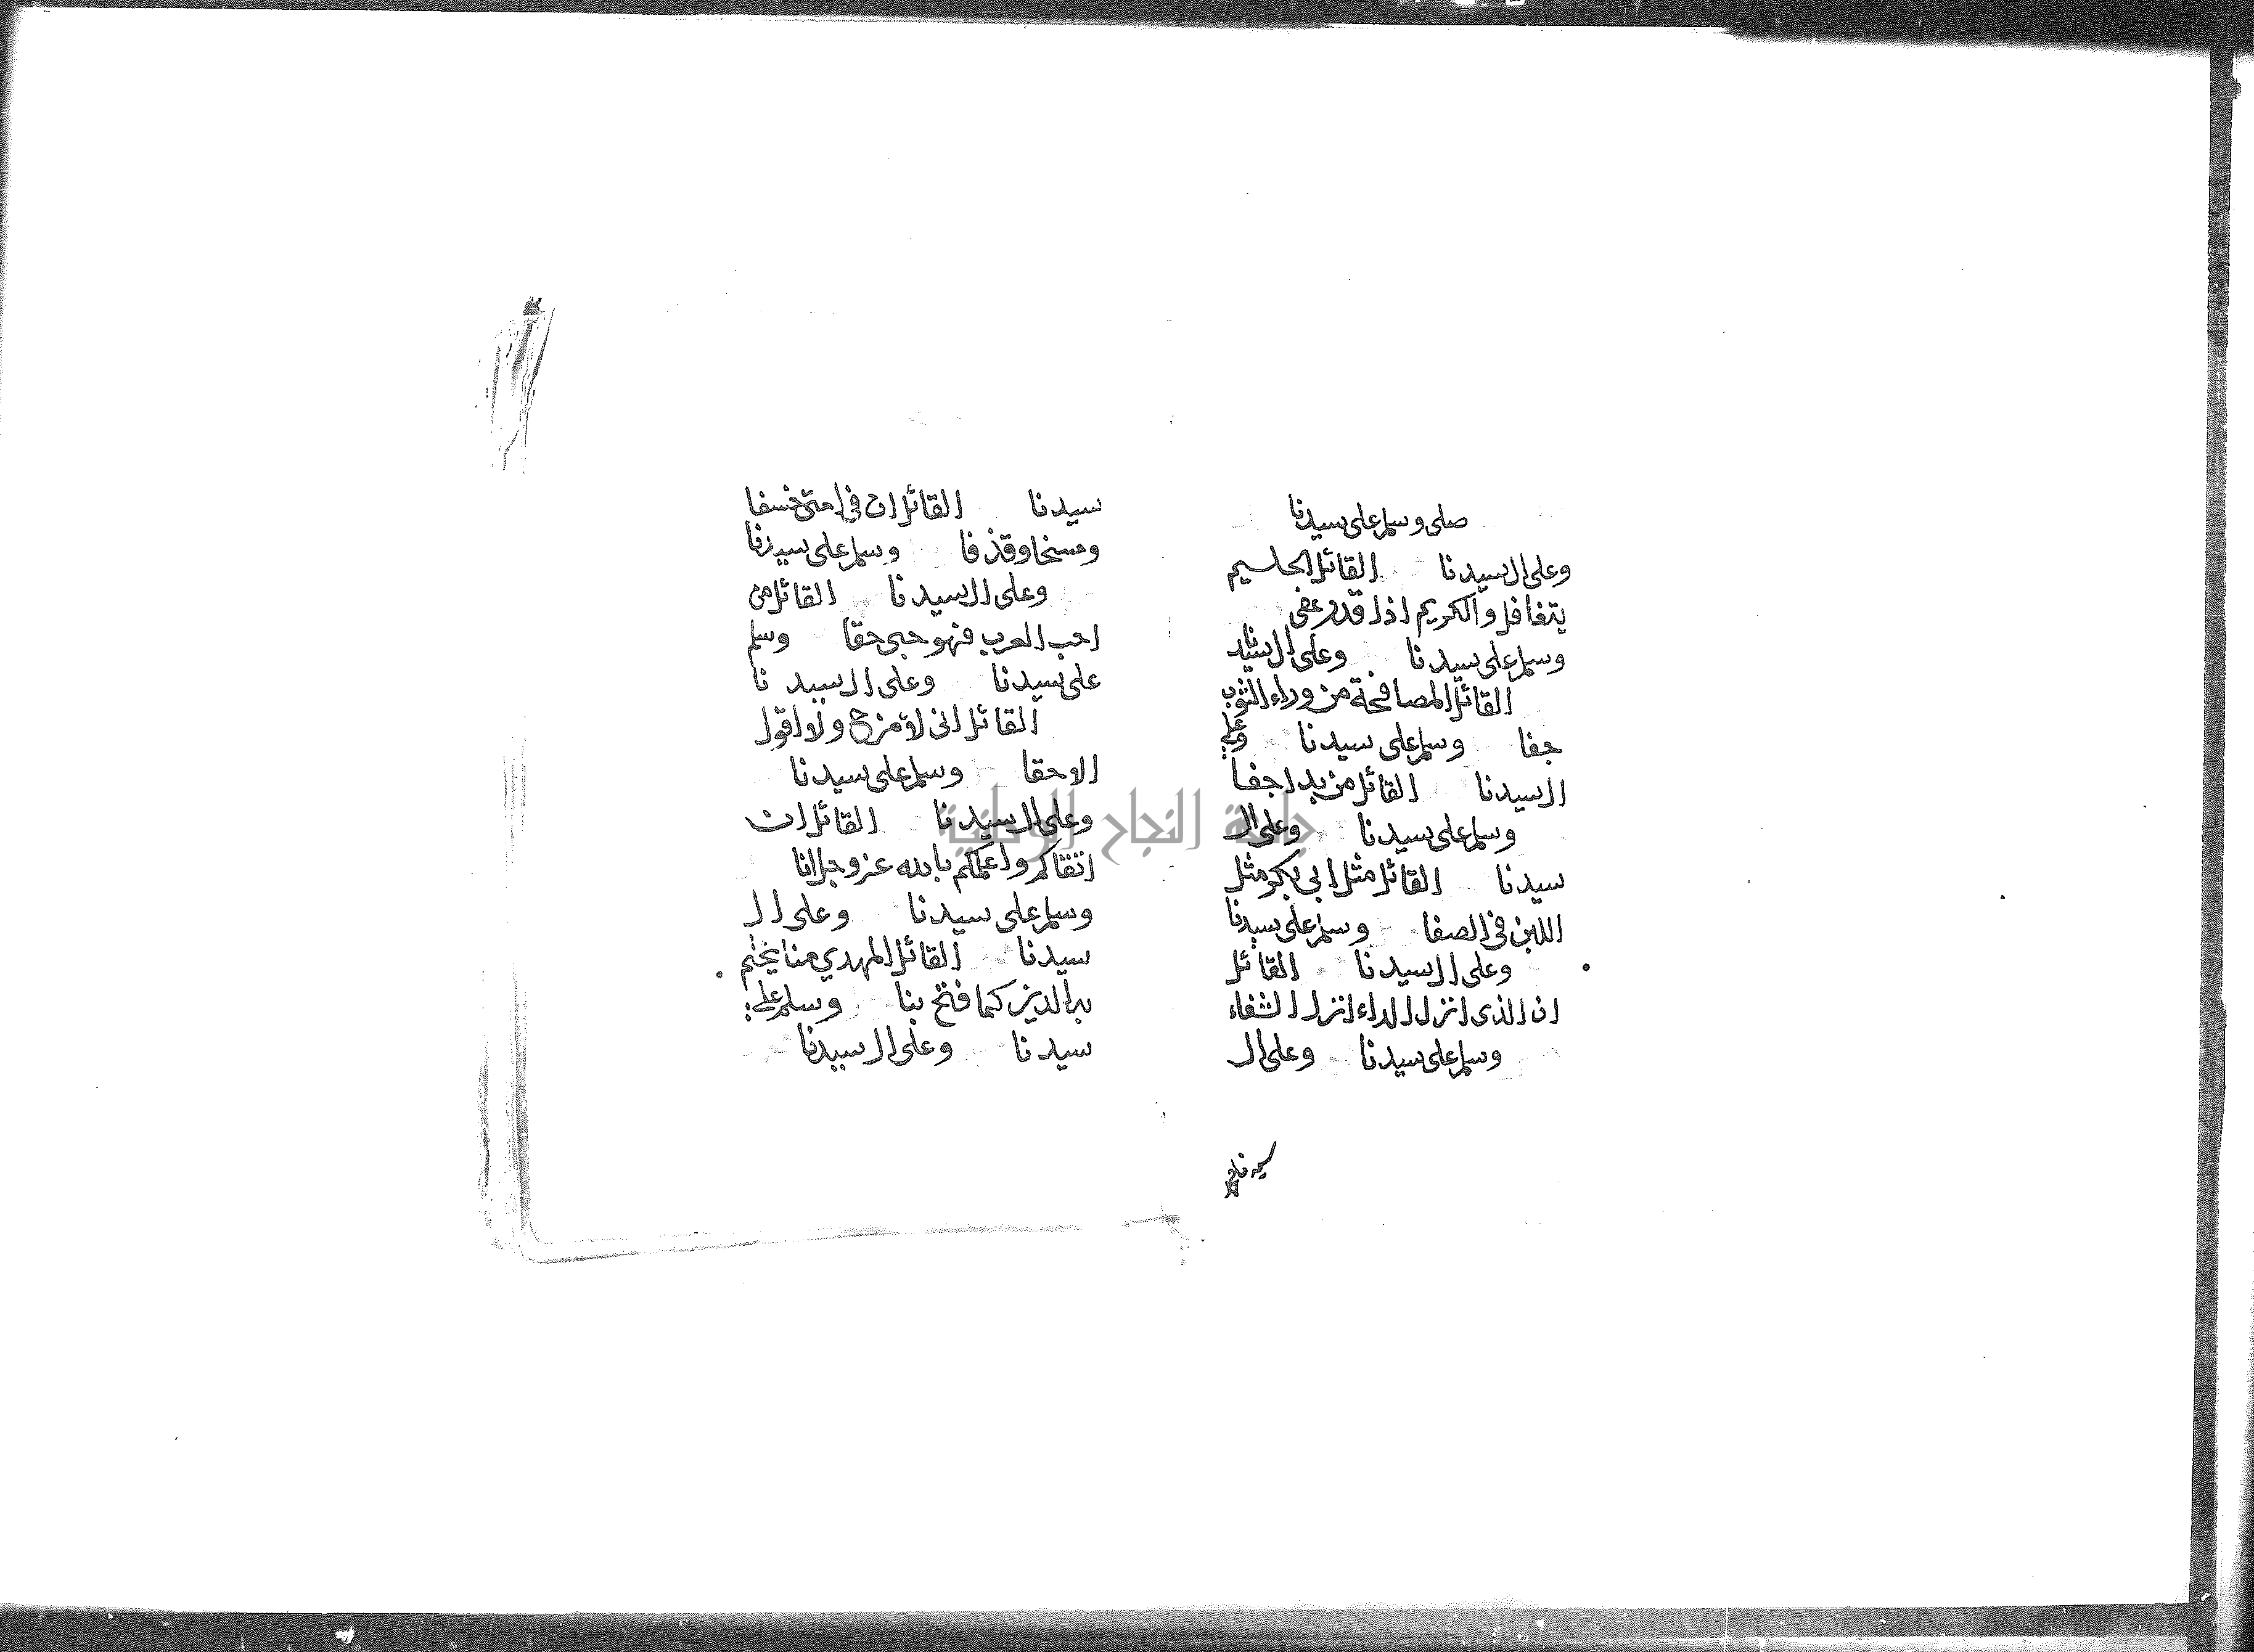 صلى وسلم على سيدنا
وعلى ال سيدنا القائل الحليم
يتغافل والكريم اذا قدر عفى
وسلم على سيدنا وعلى ال سيدنا
القائل المصافحة من وراء الثوب
جفا وسلم على سيدنا وعلى
ال سيدنا القائل من بدا جفا
وسلم على سيدنا وعلى ال
سيدنا القائل مثل ابي بكر مثل
اللبن في الصفا وسلم على سيدنا
وعلى ال سيدنا القائل
ان الذى انزل الداء انزل الشفاء
وسلم على سيدنا وعلى ال
سيدنا القائل ان في امتى خسفا
ومسخا وقذفا وسلم على سيدنا
وعلى ال سيدنا القائل من
احب العرب فهو حبى حقا وسلم
على سيدنا وعلى ال سيدنا
القائل انى لامزح ولا اقول
الا حقا وسلم على سيدنا
وعلى ال سيدنا القائل ان
اتقاكم واعلمكم بالله عز وجل انا
وسلم على سيدنا وعلى ال
سيدنا القائل المهدي منا يختم
به الدين كما فتح بنا وسلم على
سيدنا وعلى ال سيدنا
جامعة النجاح الوطنية